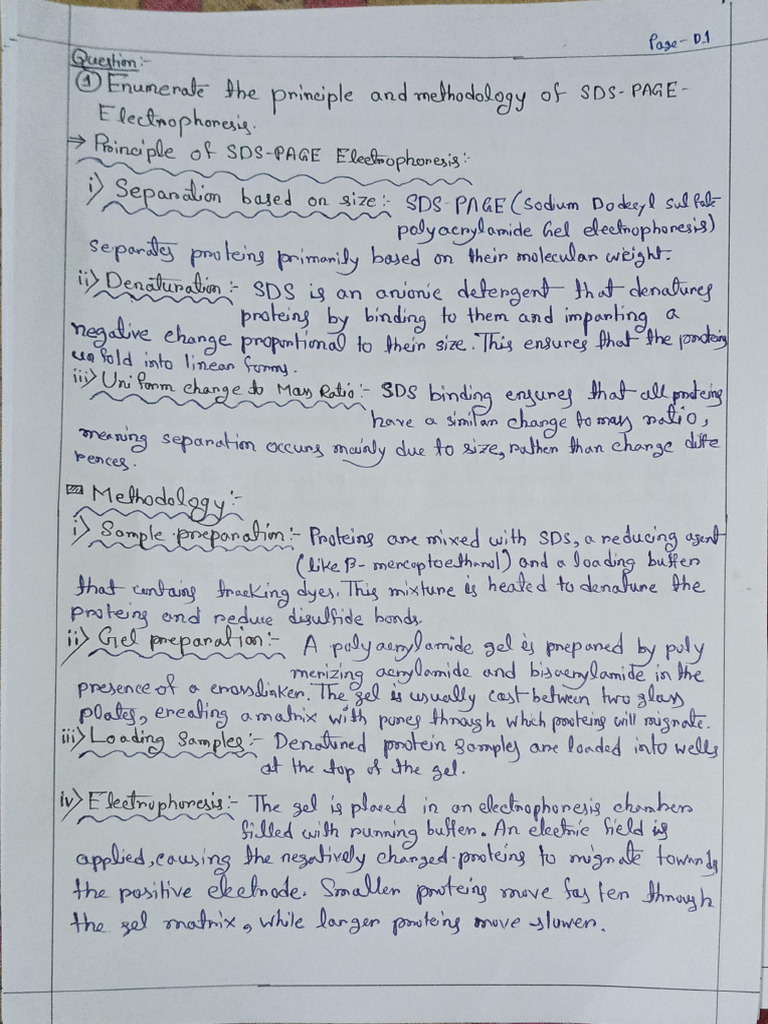 Page - 01
Question:-
① Enumerate the principle and methodology of SDS-PAGE-
Electrophoresis.
→ Principle of SDS-PAGE Electrophoresis:-
i) Separation based on size:- SDS-PAGE (Sodium Dodecyl sulfate
polyacrylamide Gel electrophoresis)
separates proteins primarily based on their molecular weight.
ii) Denaturation:- SDS is an anionic detergent that denatures
proteins by binding to them and imparting a
negative charge proportional to their size. This ensures that the proteins
unfold into linear forms.
iii) Uniform charge to Mass Ratio:- SDS binding ensures that all proteins
have a similar charge to mass ratio,
meaning separation occurs mainly due to size, rather than charge diffe
rences.
Methodology:-
i) Sample preparation:- Proteins are mixed with SDS, a reducing agent
(like β- mercaptoethanol) and a loading buffer
that contains tracking dyes. This mixture is heated to denature the
proteins and reduce disulfide bonds.
ii) Gel preparation:- A polyacrylamide gel is prepared by poly
merizing acrylamide and bisacrylamide in the
presence of a crosslinker. The gel is usually cast between two glass
plates, creating a matrix with pores through which proteins will migrate.
iii) Loading Samples:- Denatured protein samples are loaded into wells
at the top of the gel.
iv) Electrophoresis:- The gel is placed in an electrophoresis chamber
filled with running buffer. An electric field is
applied, causing the negatively charged proteins to migrate towards
the positive electrode. Smaller proteins move faster through
the gel matrix, while larger proteins move slower.